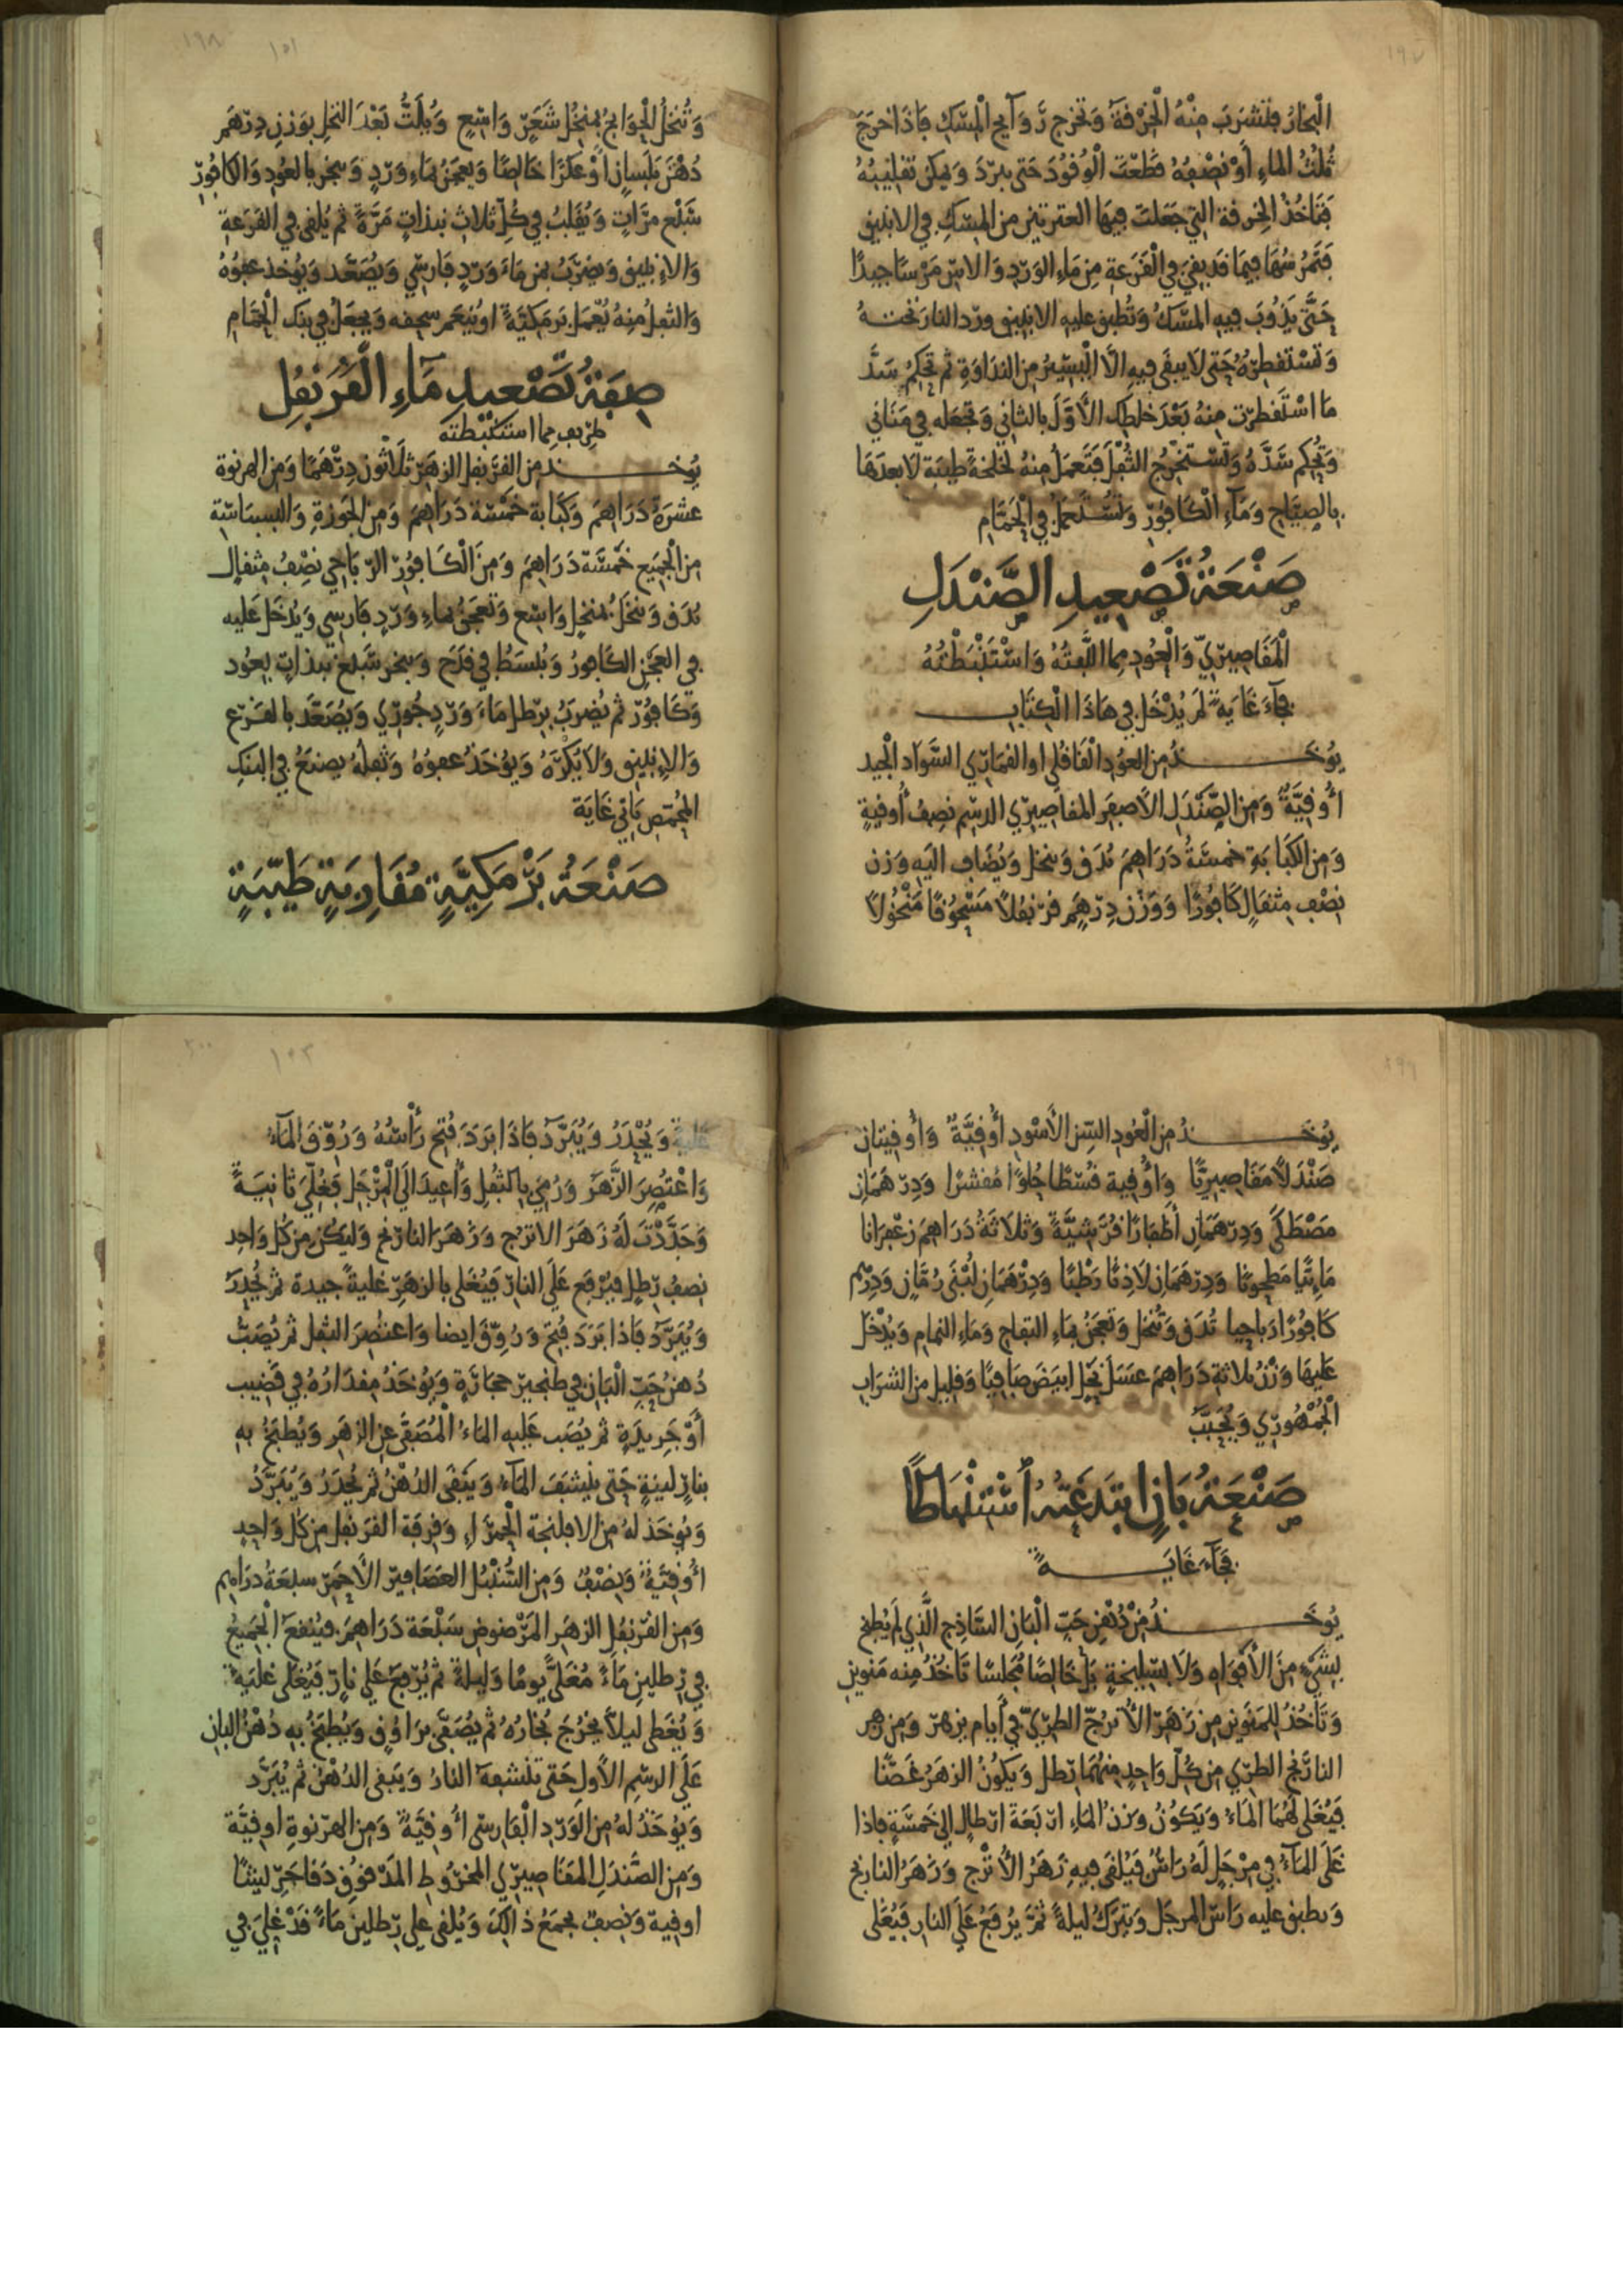 ١٩٧
الْبخارُ فتشرَبَ مِنْهُ الْخِرْقةَ وَتَخرج رَوَآيح الْمِسْكِ فَإذَا خرَجَ
ثُلُثُ الماءِ أَوْ نِصْفِهُ قطَعْتَ الْوُقُودَ حَتى يبرَدَ وَيمكن تقليبُهُ
فَتَاخُذُ الخِرقة التي جَعَلتَ فِيهَا من المِسْكِ في الانبيق
فَتَمرُسُهَا فيما قد بقيَ في الْقَرَعَةِ مِن مَاءِ الوَرْدِ وَالاس مَرْسًا جيدًا
حَتَّى يَذُوبَ فِيهِ المسْكُ وَتُطبق عليه الانبيق وَرد النار تَحتــهُ
وَتَسْتَقطِرُهُ حَتى لَا يبقَى فيهِ الَّا الْيَسِيرُ مِن النداوَةِ ثم تحْكِمُ سَدَّ
مَا اسْتَقطَرتَ مِنْهُ بَعْدَ خلطِكِ الأَوَّلَ بالثاني وَتجْعَله في قَنَاني
وَتُحكِم سَدَّهُ وَتَسْتَخْرِجُ الثُّفْلَ فَتَعمَلُ مِنهُ لَخلخةً طيبَة لَا بعدَهَا
بالصِيَّاحِ وَمَآءِ الْكَافُورِ وَتُسْتَعمَلُ في الْحَمَّام
صَنْعَةُ تَصْعِيدِ الصَّنْدَلِ
الْمَقَاصِيرِيِّ وَالْعُودِ مِما الَّفتُهُ وَاسْتَنْبَطْتُهُ
فجاءَ غَايَةً لَمْ يُدْخَل في هَاذَا الْكِتَابِ
يُوخَــــذُ مِن العوُدِ الْقَاقُلِي او القمَارِي السَّوَاد الجيد
أُوقِيَّةً وَمِن الصَّنْدَلِ الأَصفَر المقاصِيرِي الدسِم نصِفُ أُوقيةٍ
وَمِن الكَبَابَةِ خمسَةُ دَرَاهِمَ تُدَق وَتنخل وَيُضَاف اليَهِ وَزن
نِصْفِ مِثقَالٍ كَافُورًا وَوَزن دِرهَم قرنفلاً مَسْحُوقًا مَنْخُولاً
١٩٨
١٥١
وَتُنخلُ الْحَوَايجُ بمُنخُل شَعَرٍ وَاسِع وَيُلَتُّ بَعْدَ النخلِ بوَزنِ دِرْهَمٍ
دُهْنَ بَلَسَانٍ أَوْ عكَرًا خَالِصًا وَيعجَنُ بمَاءِ وَردٍ وَيبخر بالعوُدِ وَالكافورِ
سَبْع مرَّاتٍ وَيُقَلبُ في كُلِّ ثَلاث بنذاتٍ مَرَّةً ثم يُلقى في القَرَعَةِ
وَالإنبيق وَيضرَبُ بمَنِ مَاءَ وَردٍ فَارِسِي وَيُصَعَّد وَيُؤخذ عفوُهُ
وَالثفلُ مِنهُ يُعْمَل بَرمَكيَّةً او يُنعَم سحقه وَيجعَلُ في بنك الحَمَّام
صِفَةُ تَصْعِيدِ مَآءِ الْقَرَنفُلِ
طَرِيف مِما استَنْبَطتُه
يُوخَــــذ من القَرَنفل الزهرِ ثلَاثُون دِرْهَمًا وَمِن الهرنوة
عشرَةُ دَرَاهِمَ وَكبابة خَمْسَة دَرَاهِمَ وَمِن الجَوزةِ وَالبسبَاسَة
مِن الْجَمِيع خَمْسَة دَرَاهِمَ وَمِنَ الْكَافُورِ الرّبَاحي نِصْفُ مِثقَالٍ
تُدَق وَتنخَلُ بمنخلٍ وَاسِع وَتعجَنُ بماءِ وَردٍ فَارِسي وَيُدخَل عَليه
في العجنِ الكافورُ وَيُبْسَطُ في قدَح وَيبخر سَبْع بنذاتٍ بعُود
وَكَافُورٍ ثم يُضرَبُ برطل مَاءَ وَردٍ جُورِي وَيُصَعَّدُ بالقرع
وَالإنبيق وَلا يُكرَّهُ وَيؤخَذُ عفوُهُ وَثفلهُ يصنَعُ في البنك
المحمّص يَاتي غَايَة
صَنْعَةُ بَرْمَكِيَّةٍ مُقَارِبَةٍ طَيِّبَةٍ
١٩٩
يُوخَــــذُ مِن الْعُودِ السّنِ الأَسْوَدِ أُوقِيَّةً وَأُوقيتانِ
صَنْدَلاً مَقَاصِيرِيًّا وَأُوقية قُسْطًا حُلوًا مُقشرًا وَدِرهَمَانِ
مَصْطَكَى وَدِرهَمَان أَظفَارًا قُرَشِيَّةً وَثَلاثَةُ دَرَاهِم زَعْفرَانا
مَائيًّا مَطحونًا وَدِرهَمَان لاذنًا رَطْبًا وَدِرْهَمَان لُبْنَى رُمَّانٍ وَدِرْهم
كَافُورًا رَباحِيا تُدَق وَتُنخل وَتعجَنُ بمَاءِ التفاح وَمَاءِ النمام وَيُدْخَل
عَليهَا وَزنُ ثلاثةِ دَرَاهِمَ عسَل نَحْلٍ ابيَضَ صَافِيًا وَقليل من الشرَاب
الْجُمْهُورِي وَيُحَبَّبُ
صَنْعَةُ بَانٍ ابتَدَعْتُهُ ٱسْتِنْبَاطًا
فَجَآءَ غَايَــــةً
يُوخَــــذُ مِنْ دُهْنِ حَبِّ الْبَانِ السَّاذِج الَّذِي لَم يُطبخ
بِشَيْءٍ مِنَ الأَفوَاهِ وَلَا بسَليخةٍ بَل خَالِصًا مُجلسًا تَاخُذُ مِنه مَنوينِ
وَتَأخُذُ لِلمَنَوَينِ مِن زَهَرِ الأُترُجّ الطرِيِّ في أَيام بزهر وَمِن زهر
النارَنج الطرِّي مِن كُلِّ وَاحِدٍ مِنهُمَا رطل وَيَكُونُ الزهَرُ غَضًّا
فَيُغلى لَهُمَا المَاءُ وَيَكوُنُ وَزنُ المَاءِ ارْبَعَةَ ارطالٍ الى خَمسَةٍ فاذا
غَلَى المآءُ في مِرْجَلٍ لَهُ رَاسٌ فَيُلقى فِيهِ زَهَرُ الأُترْج وَزَهَرُ النارنج
وَيطبق عليه رَاسُ المرجَل وَيترَكُ ليلةً ثُمَّ يُرْفَعُ عَلَى النار فَيُغلى
٢٠٠
١٥٢
غَليَةً وَيُحْدَرُ وَيُبَرَّدُ فَاذَا بَرَدَ فُتِحَ رَأْسُهُ وَرُوِّقَ المَآءُ
وَاعْتُصِرَ الزَّهَرَ وَرُمِيَ بِالثفْلِ وَأُعِيدَ الَى الْمِرْجَلِ فَغُلِّيَ ثَانِيَةً
وَجَدَّدْتَ لَهُ زَهَرَ الاترُج وَزَهَرَ النارَنج وَليَكُن مِن كُل وَاحِد
نِصفُ رطلٍ فيُرفَع عَلَى النارِ فَيُغلى بالزهَرِ غليةً جيدة ثم يُحْدَرُ
وَيُبَرَّدُ فاذا بَرَدَ فُتِحَ وَرُوِّقَ ايضا وَاعتصِرَ الثفل ثم يُصَبُّ
دُهنُ حَبّ الْبَان في طنجير حجَارَةٍ وَيؤخَذُ مِقدَارُهُ في قضِيب
أَوْ جَرِيدَةٍ ثم يُصَب عَلَيهِ المَاءُ الْمُصَفَّى عِن الزهَرِ وَيُطبَخُ بِهِ
بنارٍ لينةٍ حَتى يُنشفَ المَآءُ وَيَبْقَى الدُهْنُ ثم يُحدَرُ وَيُبَرَّدُ
وَيُوخَذ لَهُ مِن الافلنجة الْحَمرَاءِ وَقرفَة القرَنفل من كل وَاحِدٍ
أُوقِيَّةً وَنِصْفٌ وَمِن السُّنْبُل العصَافير الأَحمَر سبعَةُ دَرَاهِم
وَمِن القرنفلِ الزهَر المَرضوض سَبْعَة دَرَاهِمَ فيُنقَع الْجَمِيعُ
في رطلين مَاءً مُغلىً يومًا وَليلةً ثم يُرفَعُ عَلى نارٍ فَيُغلى غليَةً
وَيُغَطى ليلاً يَخرُجَ بُخارُهُ ثم يُصَفَّى برَاوُقٍ وَيُطبَخُ بِهِ دُهْنُ البان
عَلَى الرسمِ الأَول حَتى تنشفهَ النارُ وَيَبقى الدُهْنُ ثم يُبَرَّد
وَيؤخَذُ لهُ مِن الوَرْدِ الْفَارِسى أُوقيَّةً وَمِن الهرنوةِ اوقيَّة
وَمِن الصَّندَل المقَاصِيرِي المخرُوط المَدقوُق دَقا جَرِيشًا
اوقية وَنِصفٌ يجمَعُ ذَالكَ وَيُلقى على رطلين مَاءً قَدْ غُلِيَ في